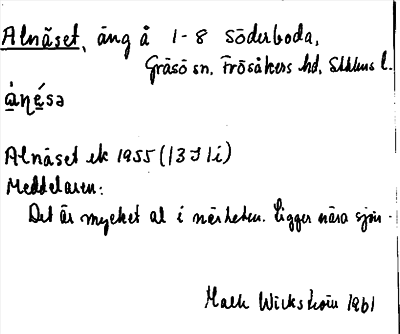 Alnäset, äng å 1-8 Söderboda,
Gräsö sn, Frösåkers hd, Sthlms l.
ȧṇésə
Alnäset ek 1955 (13 I 1i)
Meddelaren:
Det är mycket al i närheten. Ligger nära sjön.
Mats Wickström 1961